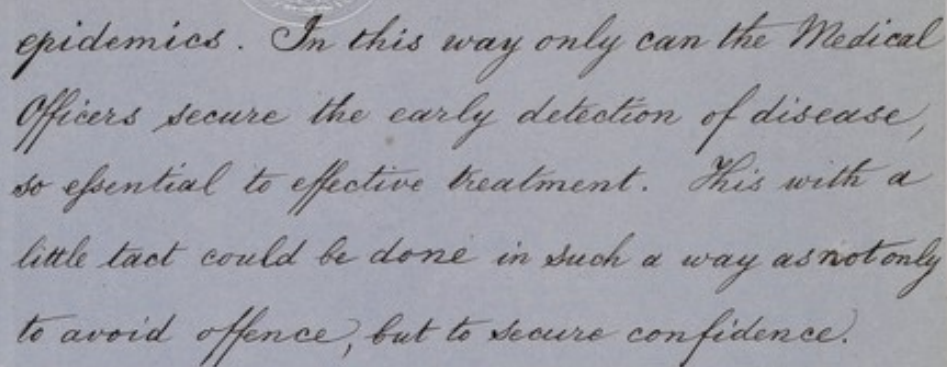 epidemics. In this way only can the Medical
Officers secure the early detection of disease,
so essential to effective treatment. This with a
little tact could be done in such a way as not only
to avoid offence, but to secure confidence.